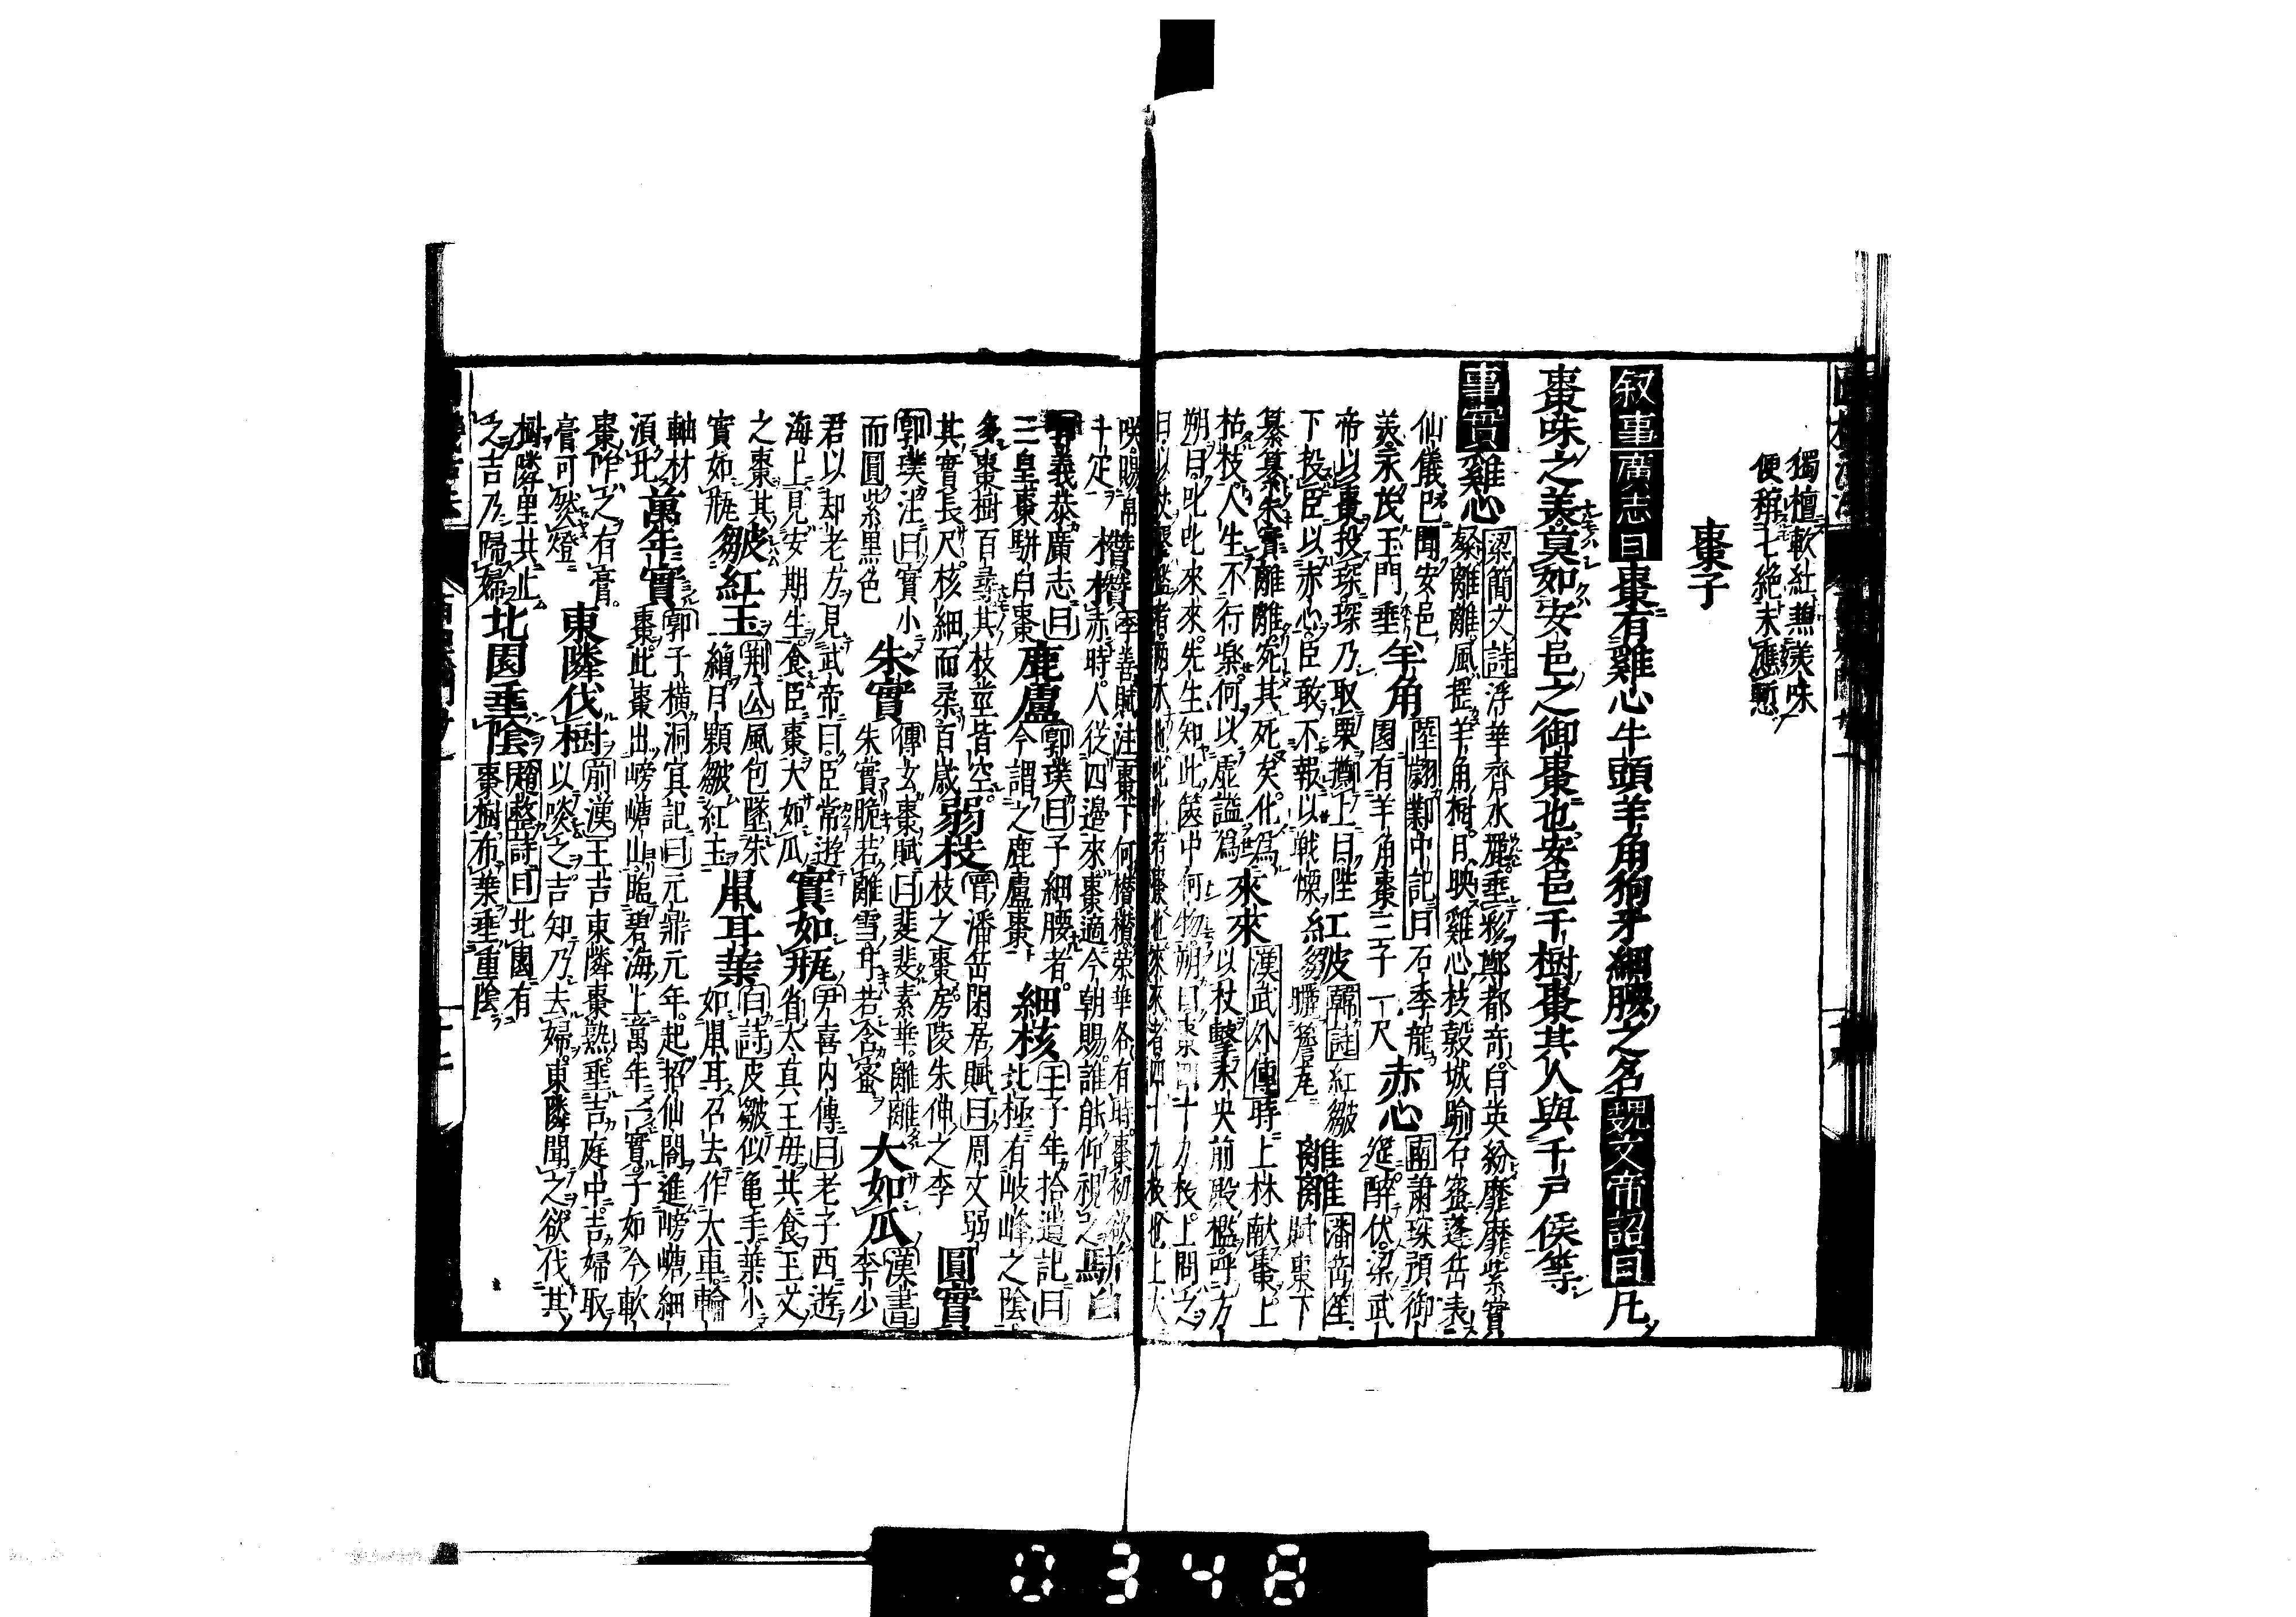 獨檀軟紅兼美味
便稱七絕未應慙
棗子
叙事廣志曰棗有雞心牛頭羊角狗牙細腰之名魏文帝詔曰凡
棗味之美莫如安邑之御棗也安邑千樹棗其人與千戸侯等
事實雞心
梁簡文詩浮華齊水麗垂彩鄭都奇白英紛靡靡紫實
粲離離風揺羊角樹日映雞心枝穀城踰石蜜蓬岳表
仙儀已聞安邑
美永茂玉門垂
羊角
陸翽鄴中記曰石季龍
園有羊角棗三子一尺
赤心
蕭琛預御
筵醉伏梁武
帝以棗投琛琛乃取栗擲上曰陛
下投臣以赤心臣敢不報以戰慄
紅皺
韓詩紅皺
曬簷瓦
離離
潘岳笙
賦棗下
纂纂朱實離離宛其死矣化爲
枯枝人生不行樂何以虚謚爲
來來
漢武外傳時上林献棗上
以杖擊未央前殿檻呼方
朔曰叱叱來來先生知此篋中何物朔曰棗四十九枚上問之
十疋
櫕櫕
李善賦注棗下何櫕櫕榮華各有時棗初欲
赤時人従四邊來棗適今朝賜誰能仰視之
義恭廣志曰
三皇棗駢白棗
鹿盧
郭璞曰子細腰者
今謂之鹿盧棗
細核
王子年拾遺記曰
北極有岐峰之陰
多棗樹百尋其枝莖皆空
其實長尺核細而柔百歳
弱枝
晋潘岳閑居賦曰周文弱
枝之棗房陵朱仲之李
圓實
郭璞注曰實小
而圓紫黒色
朱實
傳玄棗賦曰斐斐素華離離
朱實脆若離雪甘若含蜜
大如瓜
漢書
李少
君以却老方見武帝曰臣常遊
海上見安期生食臣棗大如瓜
實如瓶
尹喜内傳曰老子西遊
省太真王母共食玉文
之棗其
實如瓶
皺紅玉
荆公風包墜朱
繒日顆皺紅玉
鼠耳葉
白詩皮皺似亀手葉小
如鼠耳召去作大車輪
軸材
須此
萬年實
郭子横洞冥記曰元鼎元年起招仙閣進嵭嵣細
棗此棗出嵭嵣山臨碧海上萬年一實子如今軟
棗咋之有膏
膏可然燈
東隣伐樹
前漢王吉東隣棗熟垂吉庭中吉婦取
以啖之吉知乃去婦東隣聞之欲伐其
樹隣里共止
之吉乃歸婦
北園垂陰
趙整詩曰北園有
棗樹布葉垂重陰
0348